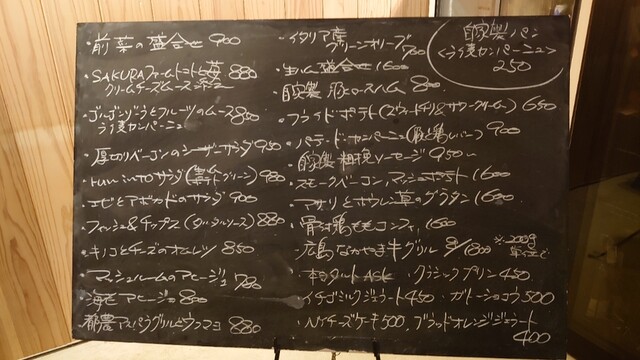 ・前菜の盛合せ 900
・SAKURAファームトマトと苺
クリームチーズムース 880
・ゴルゴンゾーラとフルーツのムース 850
ライ麦カンパーニュ
・厚切りベーコンのシーザーサラダ 950
サラダ(グリーン) 980
・エビとアボカドのサラダ 900
・フィッシュ&チップス(タルタルソース) 880
・キノコとチーズのオムレツ 850
・マッシュルームのアヒージョ 780
・海老アヒージョ 800
都農アスパラグリル 880
・イタリア産
グリーンオリーブ 700
・生ハム盛合せ 1600
・自家製 豚ロースハム 800
・フライドポテト(スウィートチリ&サワークリーム) 650
・パテ・ド・カンパーニュ(豚と鶏レバー) 900
・自家製粗挽ソーセージ 950〜
・スモークベーコン、マッシュポテト 1600
・アサリとホウレン草のグラタン 1600
・骨付鶏ももコンフィ 1600
・広島なかやま牛グリル 8/1800 ※200g
・本日タルト ASK ・クラシックプリン 450
・イチゴミルクジェラート 450 ・ガトーショコラ 500
・N.Yチーズケーキ 500 ・ブラッドオレンジジェラート
400
自家製パン
<ライ麦カンパーニュ>
250